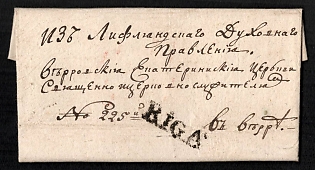 Изъ Лифляндскаго Духовнаго
Правленія,
Верровскія Екатерининскія Церкви
Священноцерковнослужителю
No 225 RIGA въ Верр.